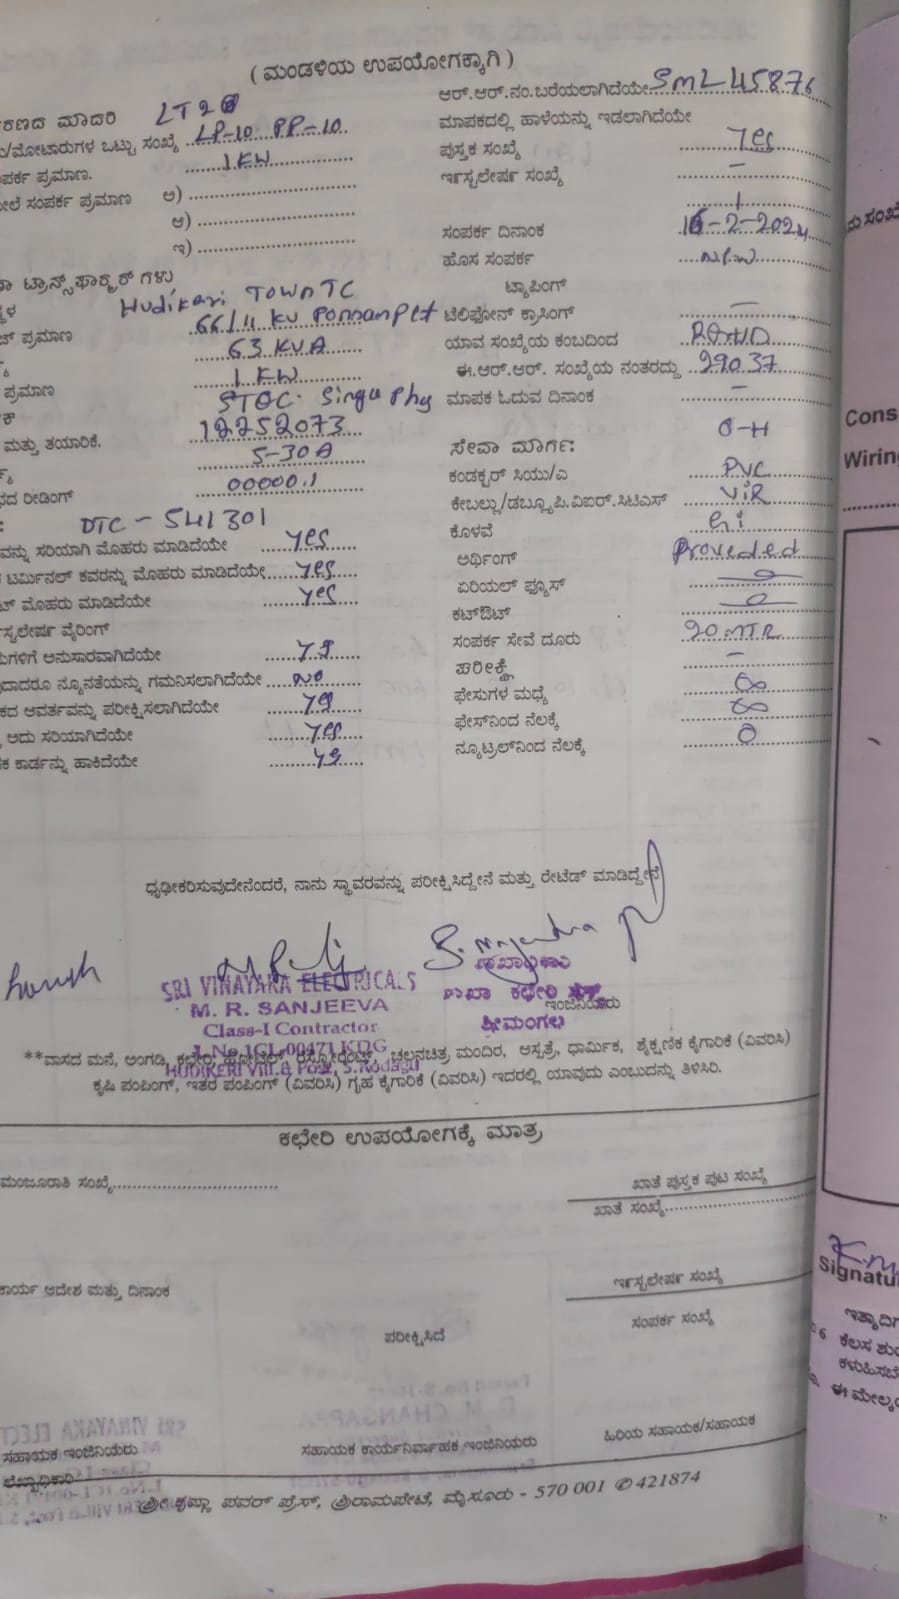 ( ಮಂಡಳಿಯ ಉಪಯೋಗಕ್ಕಾಗಿ )
ಕರಣದ ಮಾದರಿ LT2
ು/ಮೋಟಾರುಗಳ ಒಟ್ಟು ಸಂಖ್ಯೆ ..LP-10 PP-10..
ಂಪರ್ಕ ಪ್ರಮಾಣ. 1 KW
ೇಲೆ ಸಂಪರ್ಕ ಪ್ರಮಾಣ ಅ)
ಆ)
ಇ)
ಾ ಟ್ರಾನ್ಸ್‌ಫಾರ್ಮರ್ ಗಳು
ಳ Hudikari TOWN TC
ಪ್ರಮಾಣ 66/11 KV Ponnampet
63 KVA
ಪ್ರಮಾಣ 1 KW
STOC. Single Phy
ಮತ್ತು ತಯಾರಿಕೆ. 12252073
5-30A
ದ ರೀಡಿಂಗ್ 00000.1
: DTC - 541301
ವನ್ನು ಸರಿಯಾಗಿ ಮೊಹರು ಮಾಡಿದೆಯೇ yes
ಟರ್ಮಿನಲ್ ಕವರನ್ನು ಮೊಹರು ಮಾಡಿದೆಯೇ yes
ಟ್ ಮೊಹರು ಮಾಡಿದೆಯೇ yes
ಸ್ಟಲೇಷನ್ ವೈರಿಂಗ್
ಗಳಿಗೆ ಅನುಸಾರವಾಗಿದೆಯೇ yes
ುದಾದರೂ ನ್ಯೂನತೆಯನ್ನು ಗಮನಿಸಲಾಗಿದೆಯೇ No
ಕದ ಆವರ್ತವನ್ನು ಪರೀಕ್ಷಿಸಲಾಗಿದೆಯೇ yes
, ಅದು ಸರಿಯಾಗಿದೆಯೇ yes
ಕ ಕಾರ್ಡನ್ನು ಹಾಕಿದೆಯೇ yes
ಆರ್.ಆರ್.ನಂ.ಬರೆಯಲಾಗಿದೆಯೇ SML45876
ಮಾಪಕದಲ್ಲಿ ಹಾಳೆಯನ್ನು ಇಡಲಾಗಿದೆಯೇ
ಪುಸ್ತಕ ಸಂಖ್ಯೆ yes
ಇನ್ಸ್ಟಲೇಷನ್ ಸಂಖ್ಯೆ –
1
ಸಂಪರ್ಕ ದಿನಾಂಕ 16-2-2024
ಹೊಸ ಸಂಪರ್ಕ
ಟ್ಯಾಪಿಂಗ್
ಟೆಲಿಫೋನ್ ಕ್ರಾಸಿಂಗ್ –
ಯಾವ ಸಂಖ್ಯೆಯ ಕಂಬದಿಂದ
ಈ.ಆರ್.ಆರ್. ಸಂಖ್ಯೆಯ ನಂತರದ್ದು 29037
ಮಾಪಕ ಓದುವ ದಿನಾಂಕ –
ಸೇವಾ ಮಾರ್ಗ: O-H
ಕಂಡಕ್ಟರ್ ಸಿಯು/ಎ PVC
ಕೇಬಲ್ಲು/ಡಬ್ಲ್ಯೂಪಿ.ವಿಐಆರ್.ಸಿಟಿಎಸ್ VIR
ಕೊಳವೆ Gi
ಅರ್ಥಿಂಗ್ Proveded
ಏರಿಯಲ್ ಫ್ಯೂಸ್
ಕಟ್‌ಔಟ್
ಸಂಪರ್ಕ ಸೇವೆ ದೂರು 20 MTR
ಪರೀಕ್ಷೆ –
ಫೇಸುಗಳ ಮಧ್ಯೆ ∞
ಫೇಸ್‌ನಿಂದ ನೆಲಕ್ಕೆ ∞
ನ್ಯೂಟ್ರಲ್‌ನಿಂದ ನೆಲಕ್ಕೆ 0
ಧೃಢೀಕರಿಸುವುದೇನೆಂದರೆ, ನಾನು ಸ್ಥಾವರವನ್ನು ಪರೀಕ್ಷಿಸಿದ್ದೇನೆ ಮತ್ತು ರೇಟೆಡ್ ಮಾಡಿದ್ದೇನೆ
SRI VINAYAKA ELECTRICALS
M. R. SANJEEVA
Class-I Contractor
L.No.1CL-00471 KDG
HUDIKERI Vill.& Post, S.Kodagu
ಶಾಖಾ ಕಛೇರಿ
ಇಂಜಿನಿಯರು
ಶ್ರೀಮಂಗಲ
**ವಾಸದ ಮನೆ, ಅಂಗಡಿ, ಕಛೇರಿ, ಹೋಟೆಲ್, ರೆಸ್ಟೋರೆಂಟ್, ಚಲನಚಿತ್ರ ಮಂದಿರ, ಆಸ್ಪತ್ರೆ, ಧಾರ್ಮಿಕ, ಶೈಕ್ಷಣಿಕ ಕೈಗಾರಿಕೆ (ವಿವರಿಸಿ)
ಕೃಷಿ ಪಂಪಿಂಗ್, ಇತರ ಪಂಪಿಂಗ್ (ವಿವರಿಸಿ) ಗೃಹ ಕೈಗಾರಿಕೆ (ವಿವರಿಸಿ) ಇದರಲ್ಲಿ ಯಾವುದು ಎಂಬುದನ್ನು ತಿಳಿಸಿರಿ.
ಕಛೇರಿ ಉಪಯೋಗಕ್ಕೆ ಮಾತ್ರ
ಮಂಜೂರಾತಿ ಸಂಖ್ಯೆ
ಖಾತೆ ಪುಸ್ತಕ ಪುಟ ಸಂಖ್ಯೆ
ಖಾತೆ ಸಂಖ್ಯೆ
ಕಾರ್ಯ ಆದೇಶ ಮತ್ತು ದಿನಾಂಕ
ಇನ್ಸ್ಟಲೇಷನ್ ಸಂಖ್ಯೆ
ಪರೀಕ್ಷಿಸಿದೆ
ಸಂಪರ್ಕ ಸಂಖ್ಯೆ
ಸಹಾಯಕ ಇಂಜಿನಿಯರು
ಲೆಖ್ಖಾಧಿಕಾರಿ
ಸಹಾಯಕ ಕಾರ್ಯನಿರ್ವಾಹಕ ಇಂಜಿನಿಯರು
ಹಿರಿಯ ಸಹಾಯಕ/ಸಹಾಯಕ
ಶ್ರೀ ಕೃಷ್ಣಾ ಪವರ್ ಪ್ರೆಸ್, ಶ್ರೀರಾಮಪೇಟೆ, ಮೈಸೂರು - 570 001 ✆ 421874
Cons
Wiring
Signatu